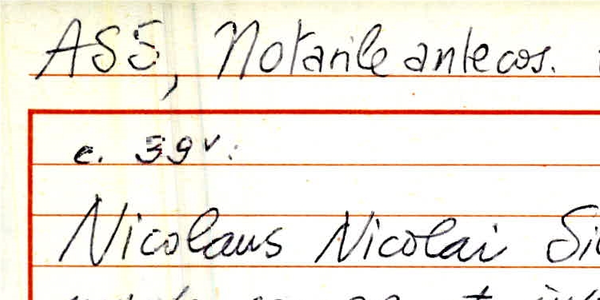 ASS, Notarile antecos.
c. 39v:
Nicolaus Nicolai